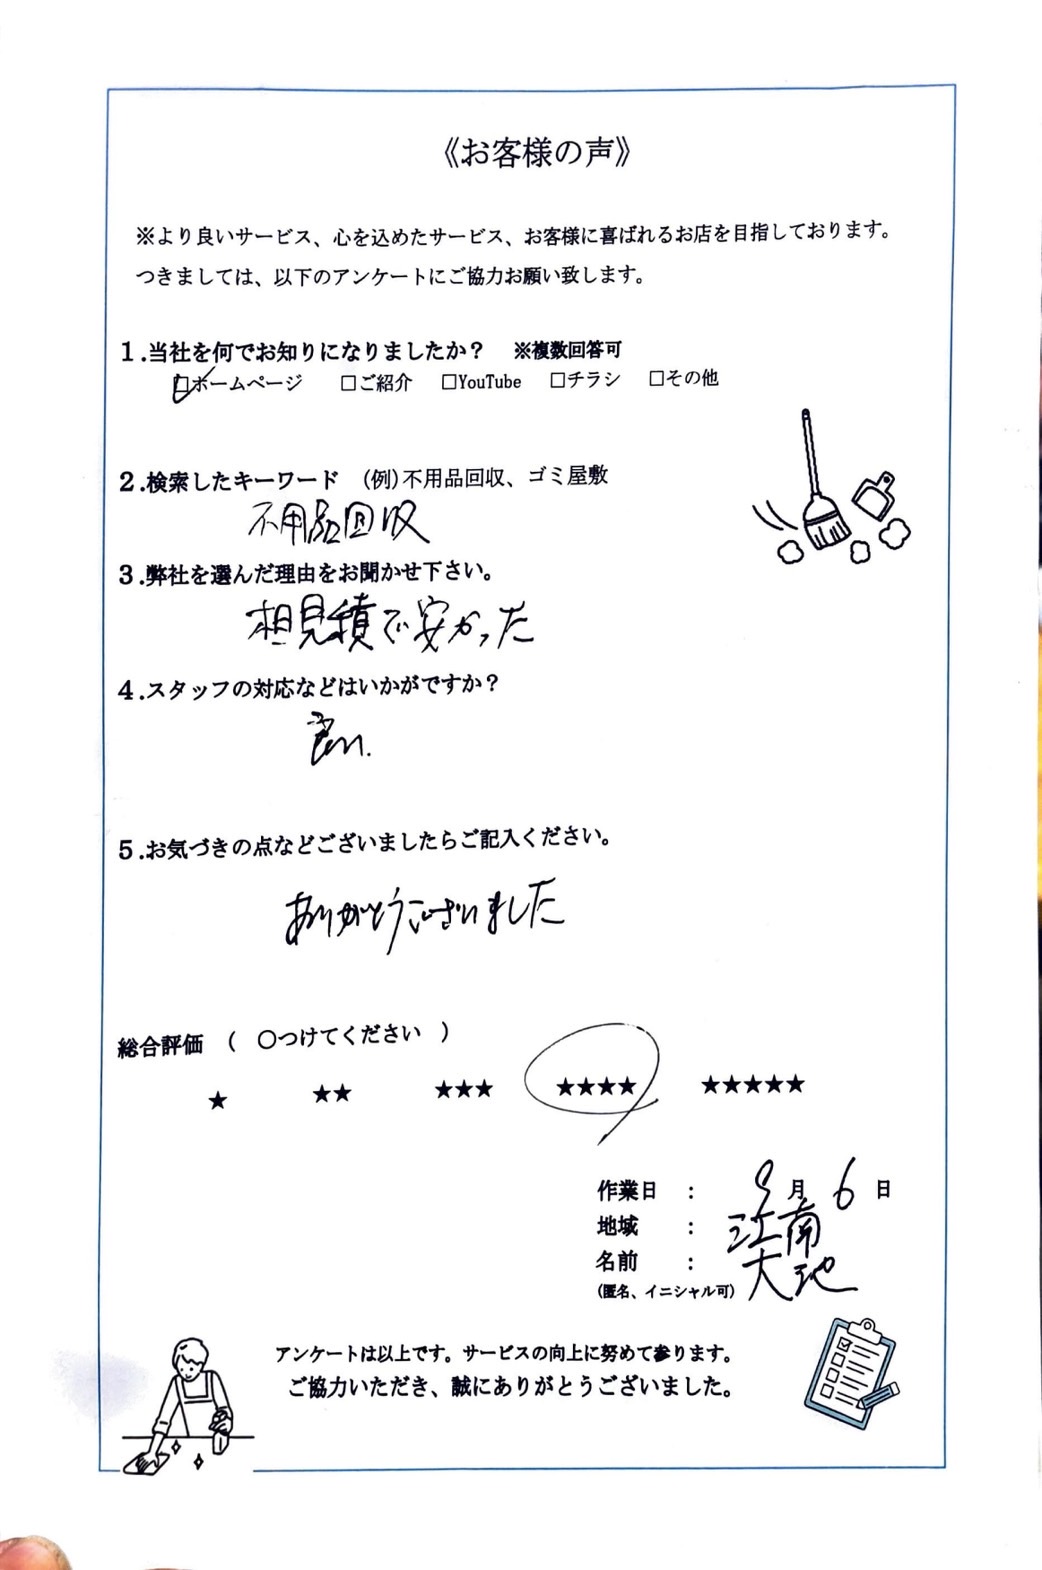 《お客様の声》
※より良いサービス、心を込めたサービス、お客様に喜ばれるお店を目指しております。
つきましては、以下のアンケートにご協力お願い致します。
1.当社を何でお知りになりましたか？ ※複数回答可
☑ホームページ □ご紹介 □YouTube □チラシ □その他
2.検索したキーワード (例)不用品回収、ゴミ屋敷
不用品回収
3.弊社を選んだ理由をお聞かせ下さい。
相見積で安かった
4.スタッフの対応などはいかがですか？
良い.
5.お気づきの点などございましたらご記入ください。
ありがとうございました
総合評価 ( ○つけてください )
★ ★★ ★★★ ★★★★ ★★★★★
作業日 : 9月6日
地域 : 江南
名前 : 大池
(匿名、イニシャル可)
アンケートは以上です。サービスの向上に努めて参ります。
ご協力いただき、誠にありがとうございました。